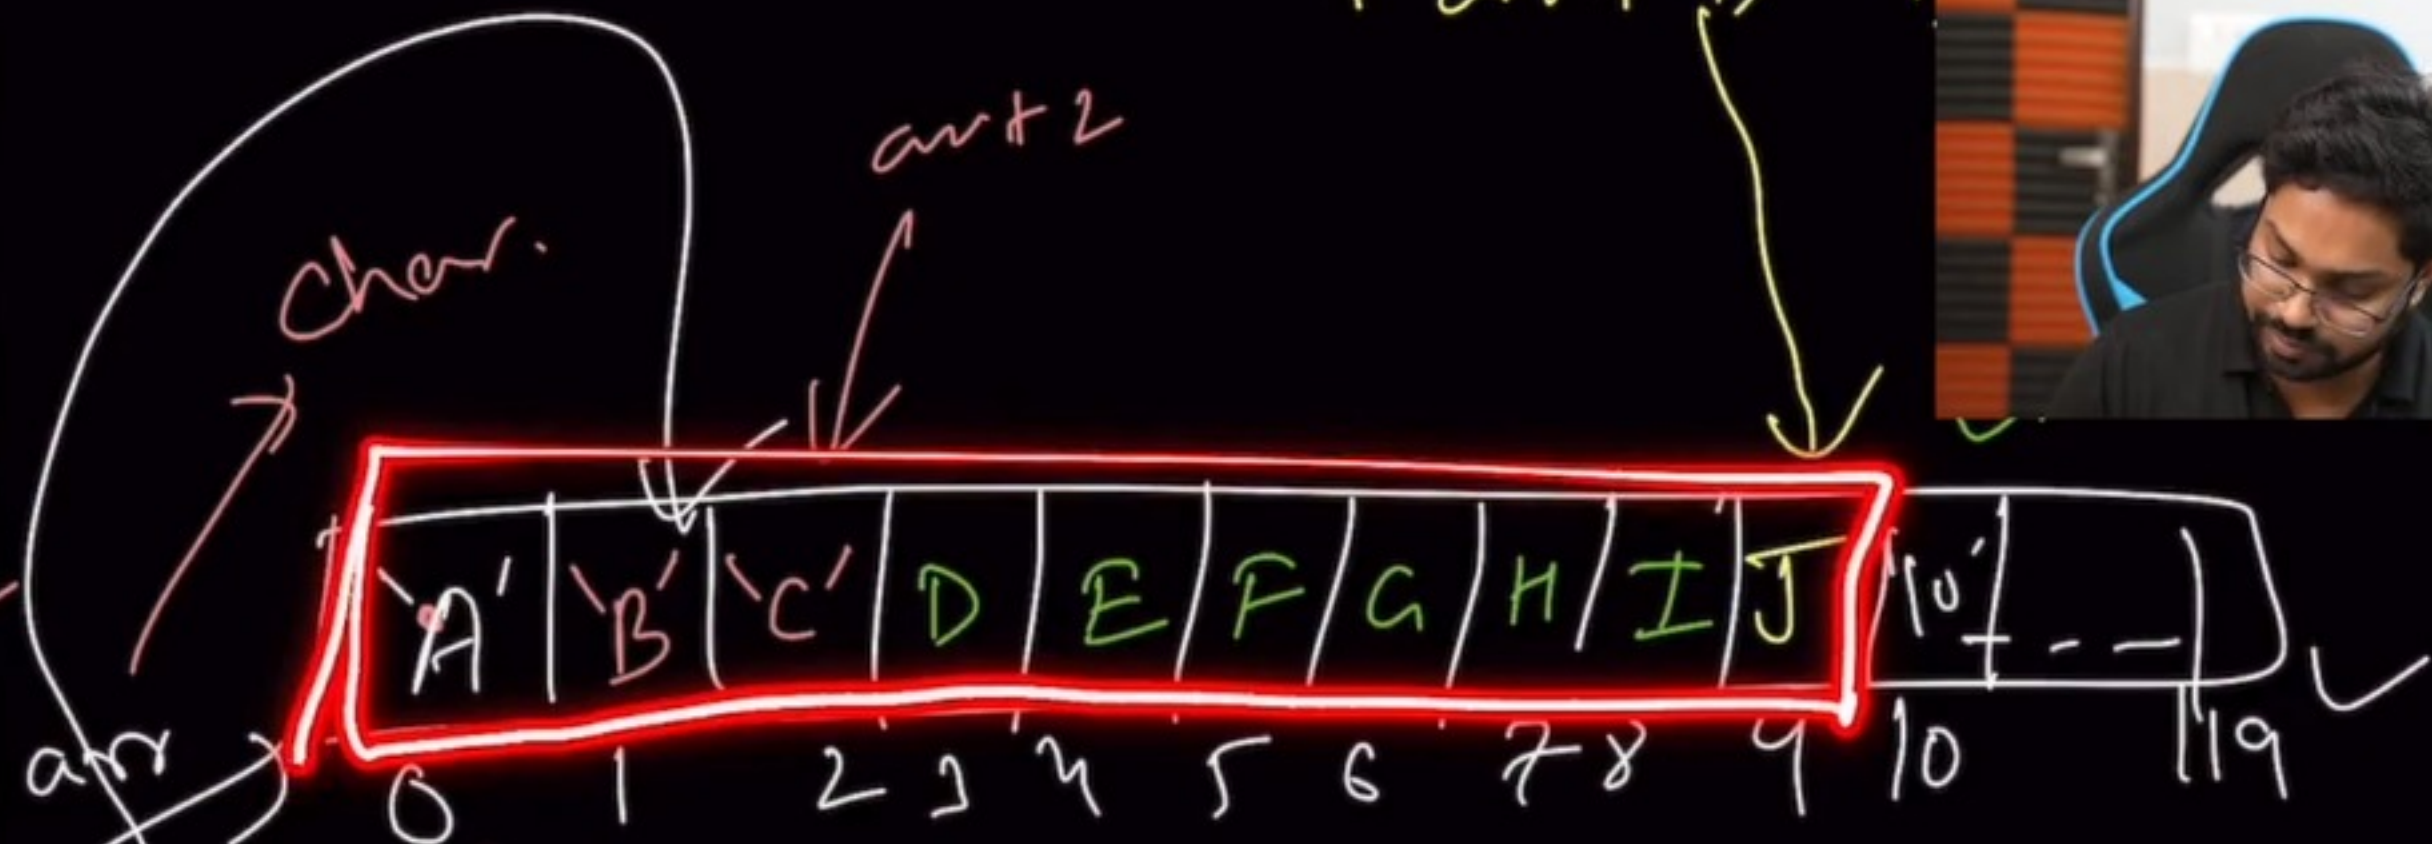 arr+2
Char.
'A' 'B' 'C' D E F G H I J '\0' - -
arr 0 1 2 3 4 5 6 7 8 9 10 19